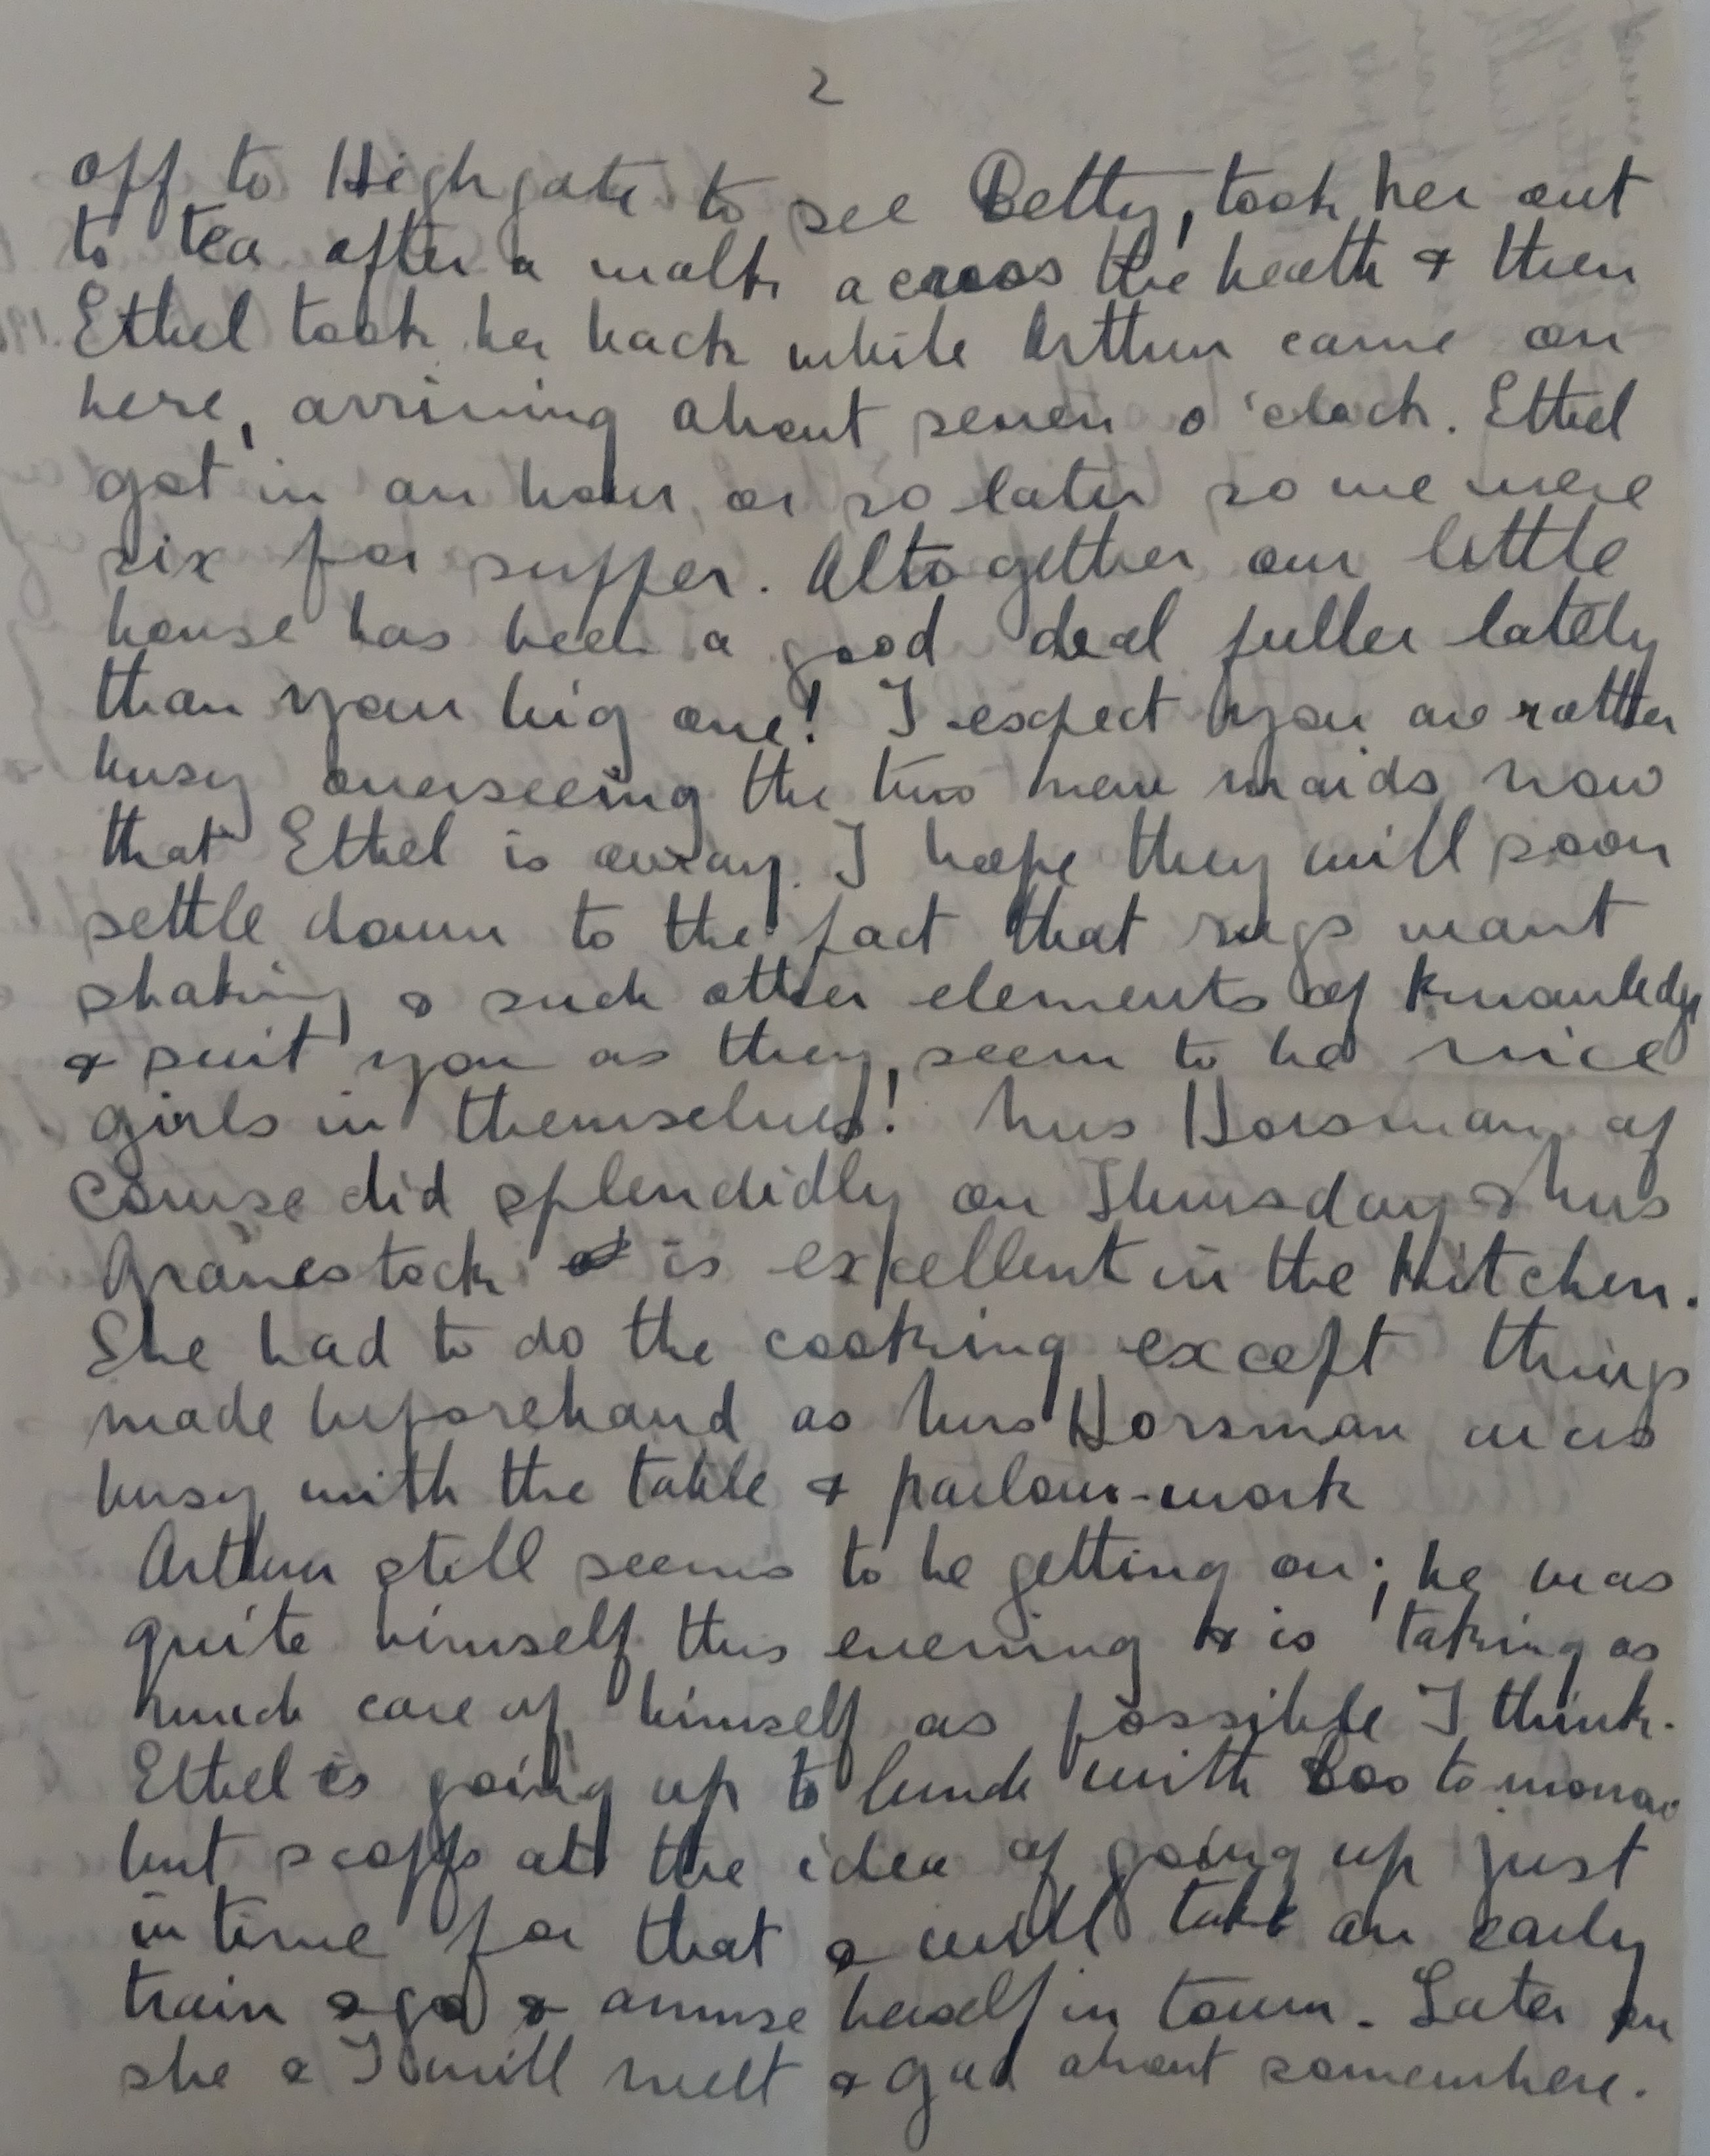 2
off to Highgate to see Betty, took her out
to tea after a walk across the heath & then
Ethel took her back while Arthur came on
here, arriving about seven o'clock. Ethel
got in an hour or so later so we were
six for supper. Altogether our little
house has been a good deal fuller lately
than your big one! I expect you are rather
busy overseeing the two new maids now
that Ethel is away. I hope they will soon
settle down to the fact that rugs want
shaking & such other elements of knowledge
& suit you as they seem to be nice
girls in themselves! Mrs Horsman of
course did splendidly on Thursday & Mrs
is excellent in the kitchen.
She had to do the cooking except things
made beforehand as Mrs Horsman was
busy with the table & parlour-work
Arthur still seems to be getting on; he was
quite himself this evening & is taking as
much care of himself as possible I think.
Ethel is going up to lunch with Boo tomorrow
but scoffs at the idea of going up just
in time for that & will take an early
train & go & amuse herself in town. Later on
she & I will meet & gad about somewhere.